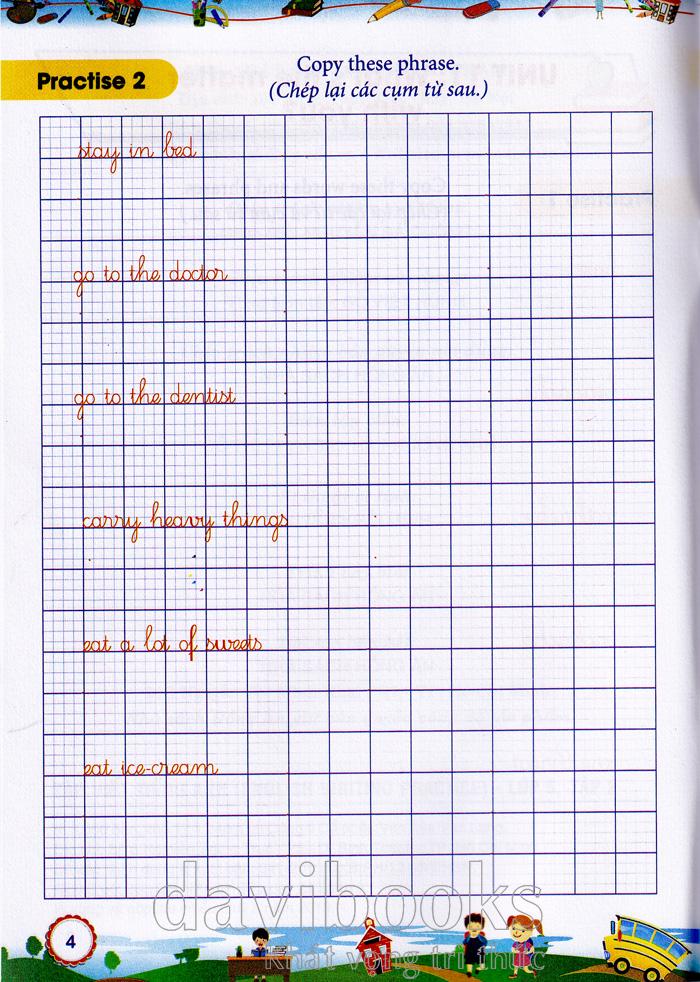 Practise 2
Copy these phrase.
(Chép lại các cụm từ sau.)
stay in bed
go to the doctor
go to the dentist
carry heavy things
eat a lot of sweets
eat ice-cream
davibooks
Khát vọng tri thức
4